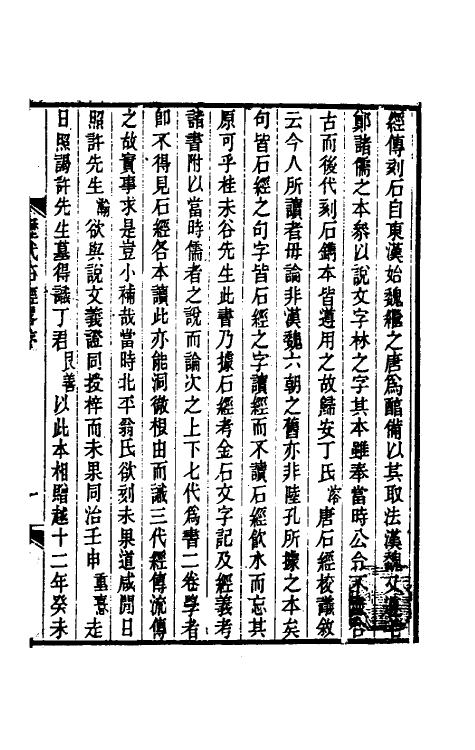 經傳刻石自東漢始魏繼之唐爲醕備以其取法漢魏又
鄭諸儒之本叅以說文字林之字其本雖奉當時公令不
古而後代刻石鐫本皆遵用之故歸安丁氏唐石經校議敘
云今人所讀者毋論非漢魏六朝之舊亦非陸孔所據之本矣
句皆石經之句字皆石經之字讀經而不讀石經飲水而忘其
原可乎桂未谷先生此書乃據石經考金石文字記及經義考
諸書附以當時儒者之說而論次之上下七代爲書二卷學者
卽不得見石經各本讀此亦能洞微根由而識三代經傳流傳
之故實事求是豈小補哉當時北平翁氏欲刻未果道咸閒日
照許先生瀚欲與說文義證同授梓而未果同治壬申重憙走
日照謁許先生墓得識丁君艮善以此本相贈越十二年癸未
歷代石經畧序
一